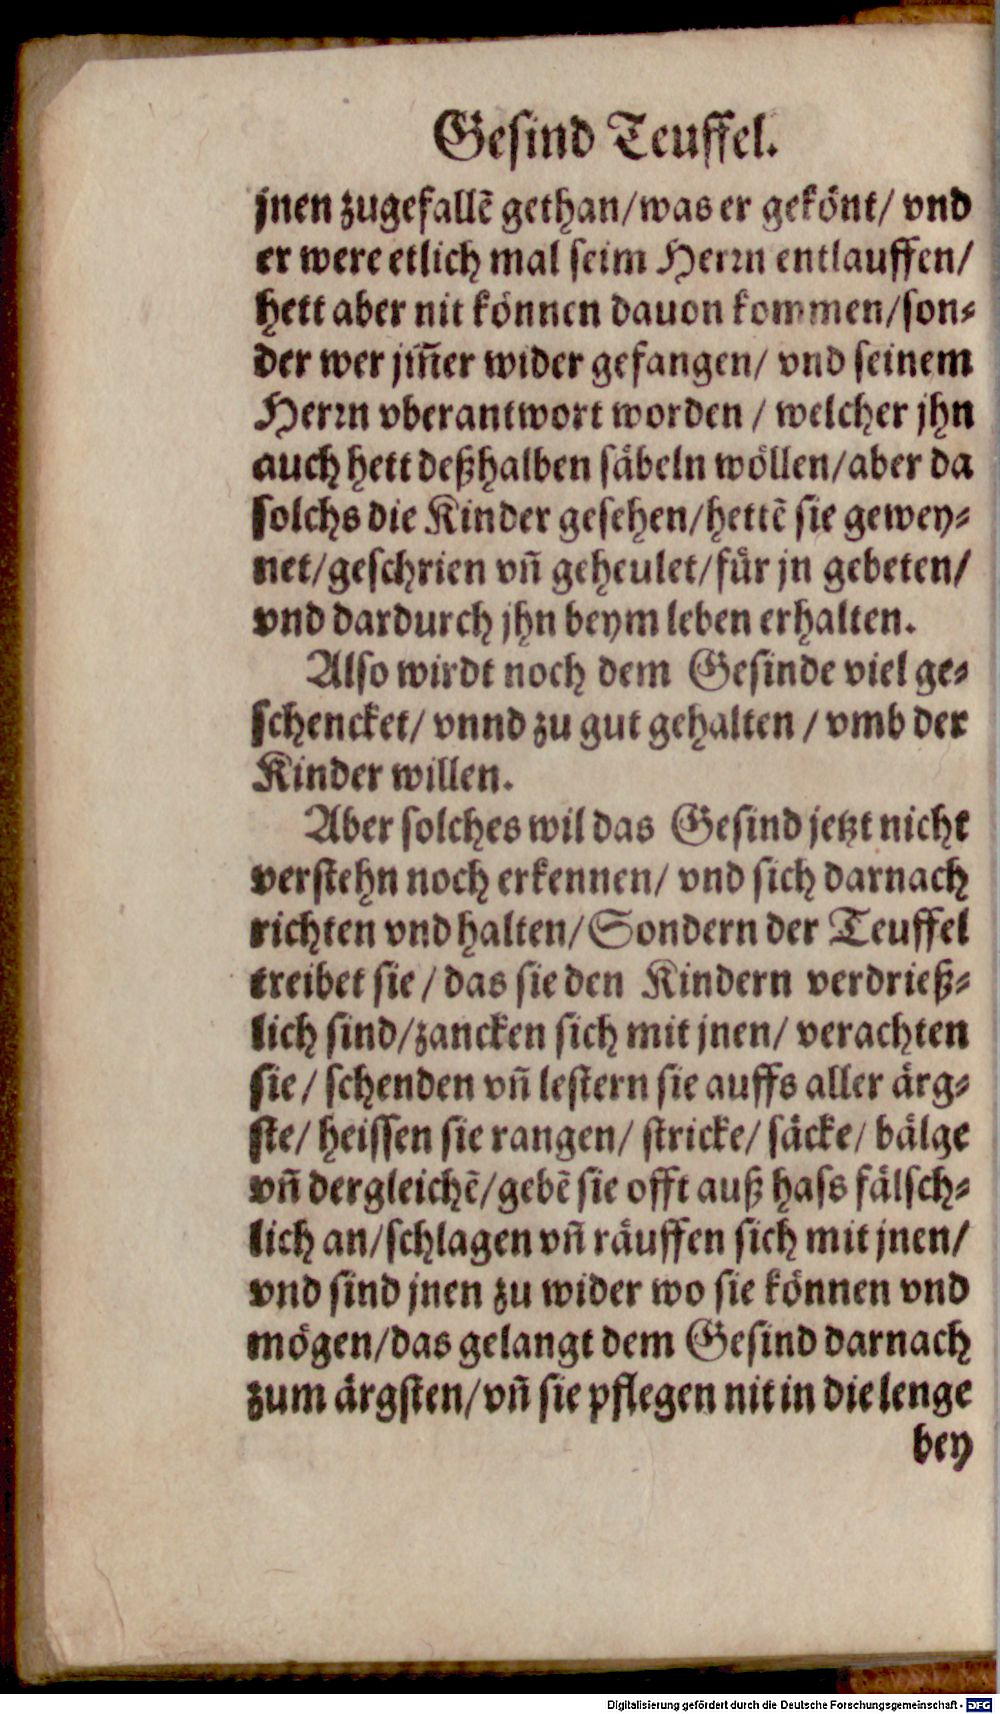 Gesind Teuffel.
jnen zugefallẽ gethan/was er gekönt/ vnd
er were etlich mal seim Herrn entlauffen/
hett aber nit können dauon kommen/son⸗
der wer jm̃er wider gefangen/ vnd seinem
Herrn vberantwort worden / welcher jhn
auch hett deßhalben säbeln wöllen/aber da
solchs die Kinder gesehen/hettẽ sie gewey⸗
net/geschrien vñ geheulet/für jn gebeten/
vnd dardurch jhn beym leben erhalten.
Also wirdt noch dem Gesinde viel ge⸗
schencket/ vnnd zu gut gehalten / vmb der
Kinder willen.
Aber solches wil das Gesind jetzt nicht
verstehn noch erkennen/ vnd sich darnach
richten vnd halten/Sondern der Teuffel
treibet sie / das sie den Kindern verdrieß⸗
lich sind/zancken sich mit jnen/ verachten
sie/ schenden vñ lestern sie auffs aller ärg⸗
ste/ heissen sie rangen/ stricke/ säcke/ bälge
vñ dergleichẽ/gebẽ sie offt auß hass fälsch⸗
lich an/schlagen vñ räuffen sich mit jnen/
vnd sind jnen zu wider wo sie können vnd
mögen/das gelangt dem Gesind darnach
zum ärgsten/vñ sie pflegen nit in die lenge
bey
Digitalisierung gefördert durch die Deutsche Forschungsgemeinschaft - DFG